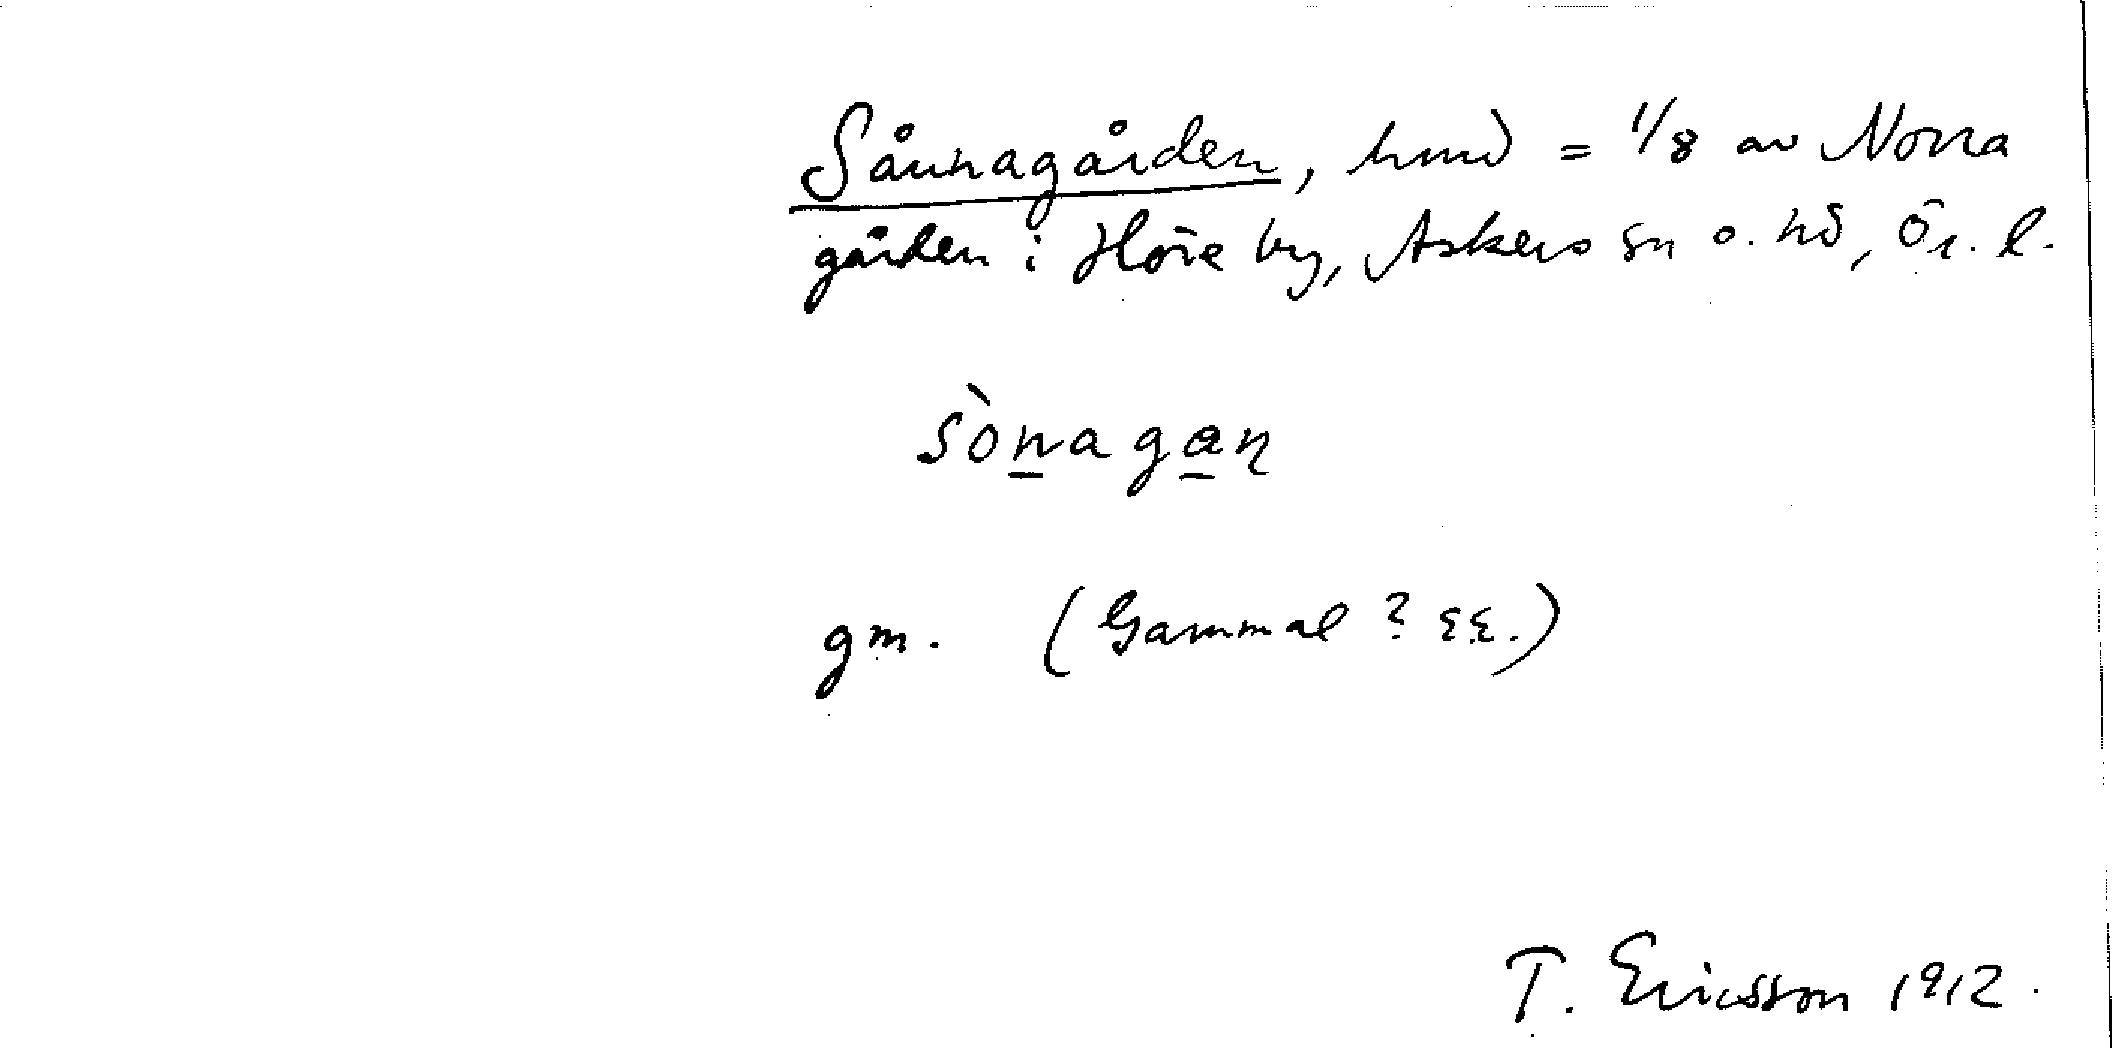 Såunagården, hmd = 1/8 av Norra
gården i Höre by, Askers sn o. hd, Ör. l.
sònagaṇ
gm. (Gammal? EE.)
T. Ericsson 1912.